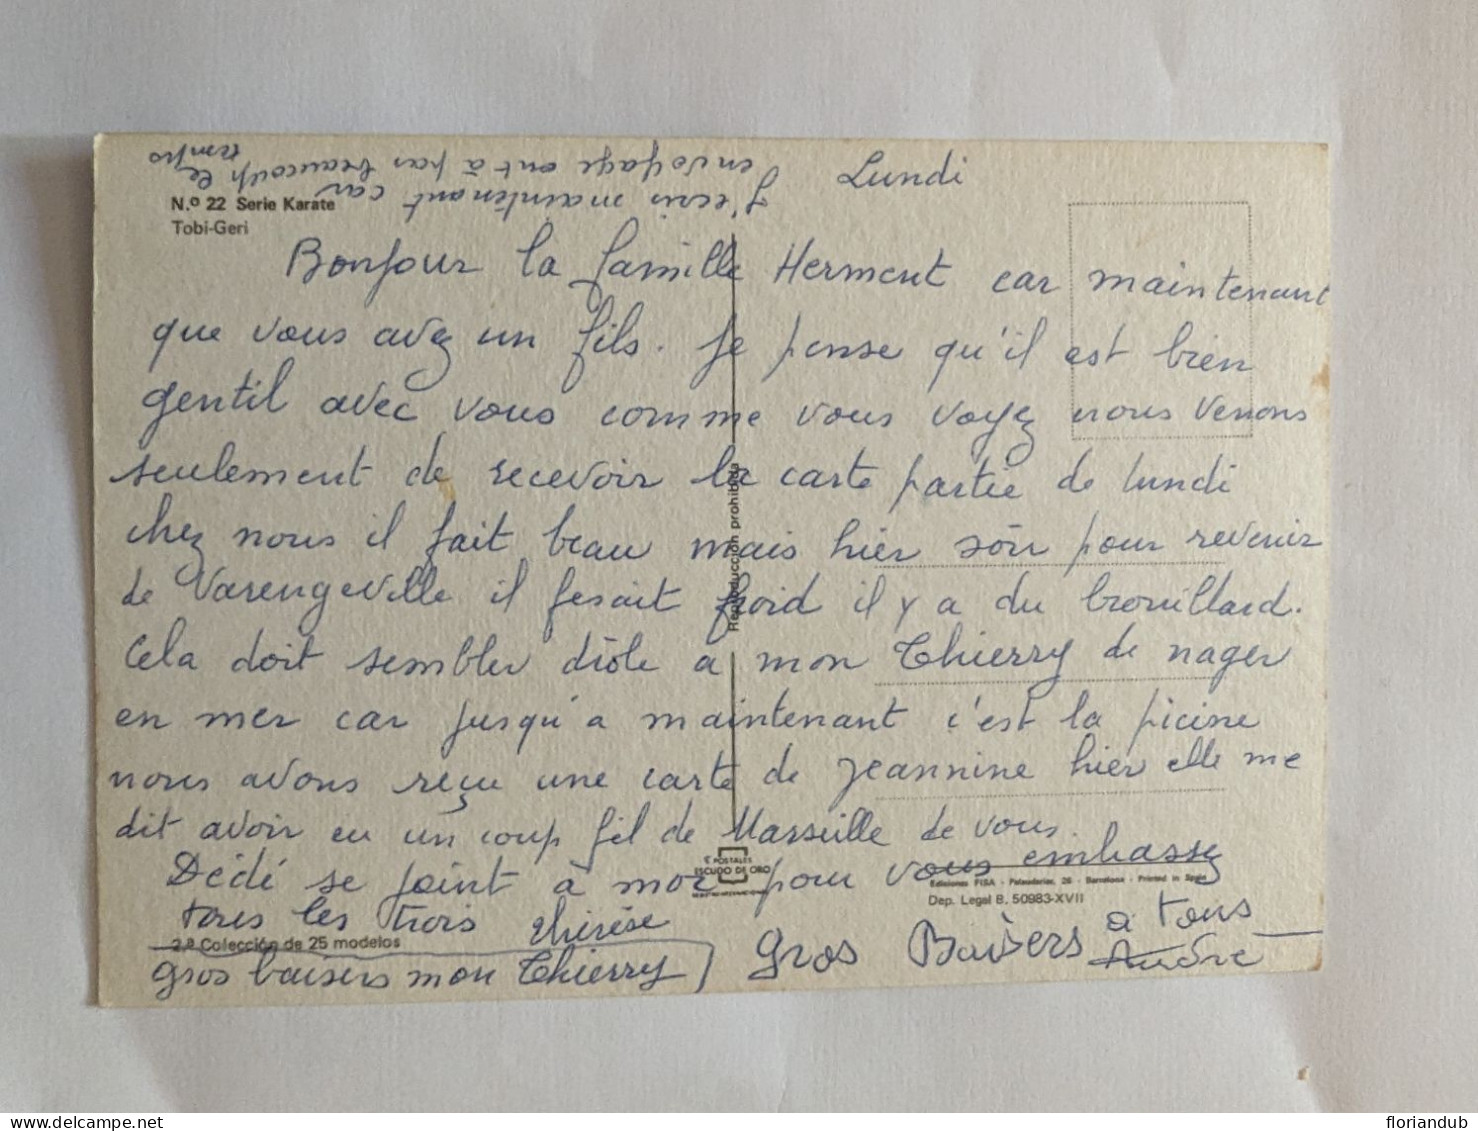 Lundi
J'ecris maintenant car
en voyage ont à pas beaucoup le
temps
N.º 22 Serie Karate
Tobi-Geri
Bonjour la famille Herment car maintenant
que vous avez un fils. Je pense qu'il est bien
gentil avec vous comme vous voyez nous venons
seulement de recevoir la carte partie de lundi
chez nous il fait beau mais hier soir pour revenir
de Varengeville il fesait froid il y a du brouillard.
Cela doit sembler drôle a mon Thierry de nager
en mer car jusqu'a maintenant c'est la picine
nous avons reçu une carte de Jeannine hier elle me
dit avoir eu un coup fil de Marseille de vous.
Dédé se joint à moi pour vous embassez
tous les trois thérèse
gros baisers mon Thierry
Gros Baisers à tous
André
Reproducción prohibida
© POSTALES
ESCUDO DE ORO
Ediciones FISA - Palaudarias, 26 - Barcelona - Printed in Spain
Dep. Legal B. 50983-XVII
2.ª Colección de 25 modelos
floriandub
delcampe.net